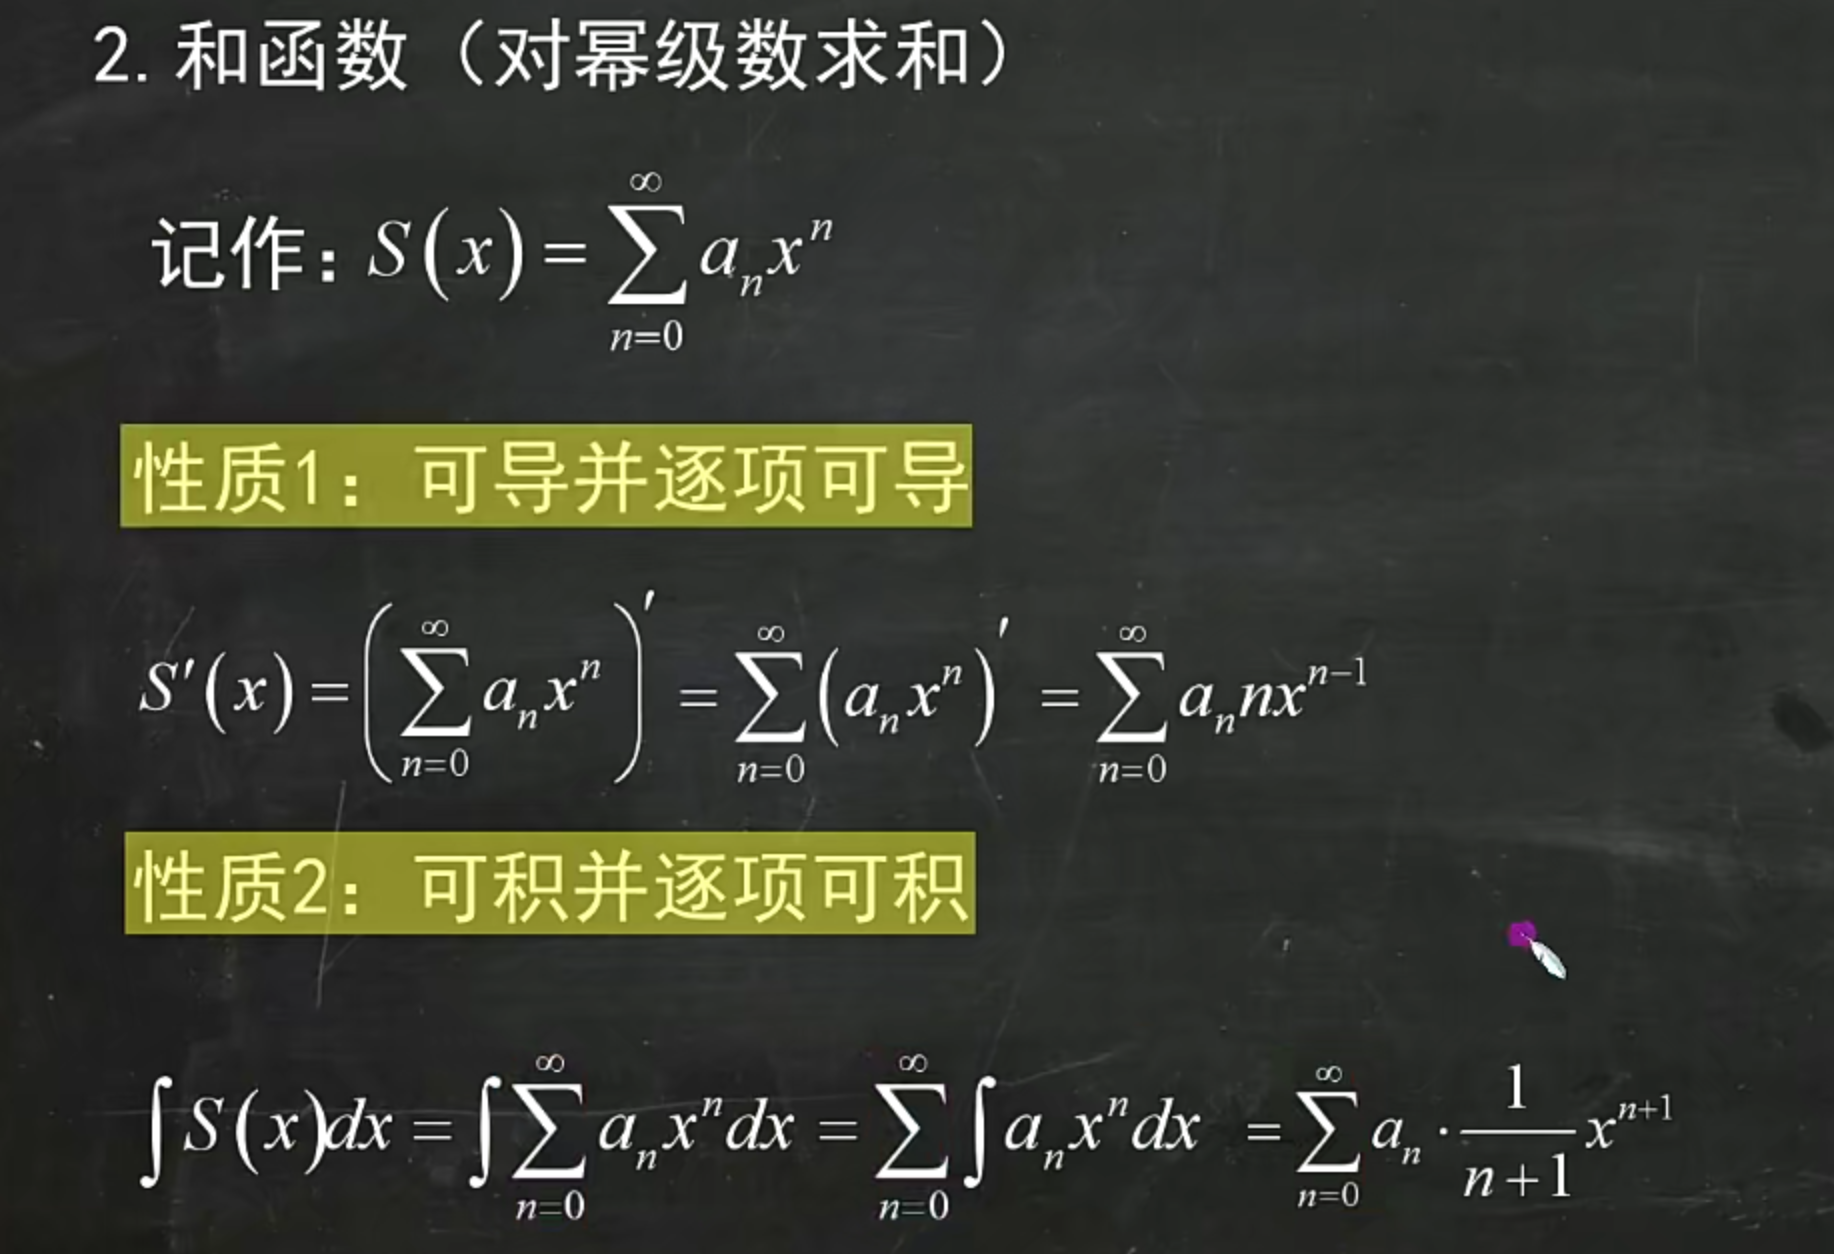 2. 和函数（对幂级数求和）
记作：S(x) = ∑_{n=0}^{∞} a_n x^n
性质1： 可导并逐项可导
S′(x) = (∑_{n=0}^{∞} a_n x^n)′ = ∑_{n=0}^{∞} (a_n x^n)′ = ∑_{n=0}^{∞} a_n n x^{n−1}
性质2： 可积并逐项可积
∫ S(x)dx = ∫ ∑_{n=0}^{∞} a_n x^n dx = ∑_{n=0}^{∞} ∫ a_n x^n dx = ∑_{n=0}^{∞} a_n · \frac{1}{n+1} x^{n+1}